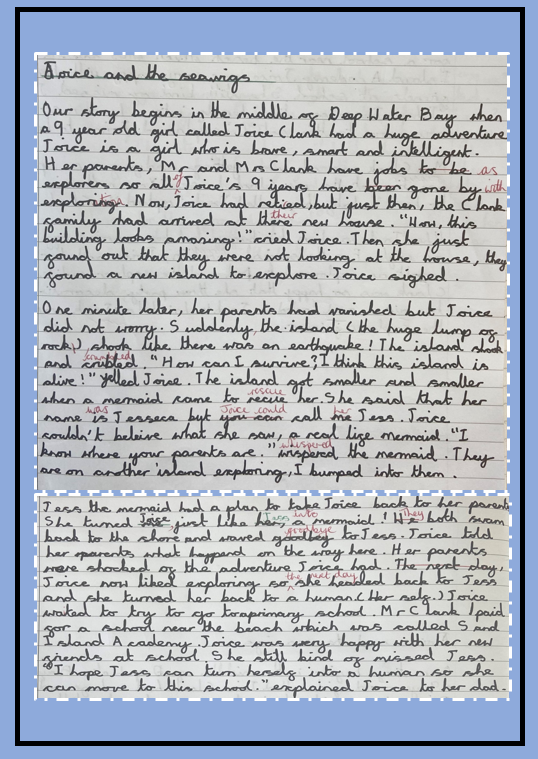 Joice and the seawigs
Our story begins in the middle of Deep Water Bay when
a 9 year old girl called Joice Clank had a huge adventure
Joice is a girl who is brave, smart and intelligent.
Her parents, Mr and Mrs Clank have jobs to be as
explorers so all of Joice's 9 years have been gone by with
exploring. Now, Joice had retired, but just then, the Clank
family had arrived at there their new house. "Wow, this
building looks amazing!" cried Joice. Then she just
found out that they were not looking at the house, they
found a new island to explore. Joice sighed.
One minute later, her parents had vanished but Joice
did not worry. Suddenly, the island (the huge lump of
rock), shook like there was an earthquake! The island shook
and crumbled. "How can I survive? I think this island is
alive!" yelled Joice. The island got smaller and smaller
rescue
when a mermaid came to her. She said that her
was Joice could her
name is Jesseca but you can call me Jess. Joice
couldn't beleive what she saw, a real life mermaid. "I
whispered
know where your parents are." wispered the mermaid. They
are on another island exploring, I bumped into them.
Jess the mermaid had a plan to take Joice back to her parents
She turned Joice just like her, Jess into a mermaid! We They both swam
goodbye
back to the shore and waved goodbey to Jess. Joice told
her parents what happend on the way here. Her parents
were shocked of the adventure Joice had. The next day,
the next day
Joice now liked exploring so she headed back to Jess
and she turned her back to a human. (Her self.) Joice
waited to try to go to a primary school. Mr Clank paid
for a school near the beach which was called Sand
Island Academy. Joice was very happy with her new
friends at school. She still kind of missed Jess.
"I hope Jess can turn herself into a human so she
can move to this school." explained Joice to her dad.